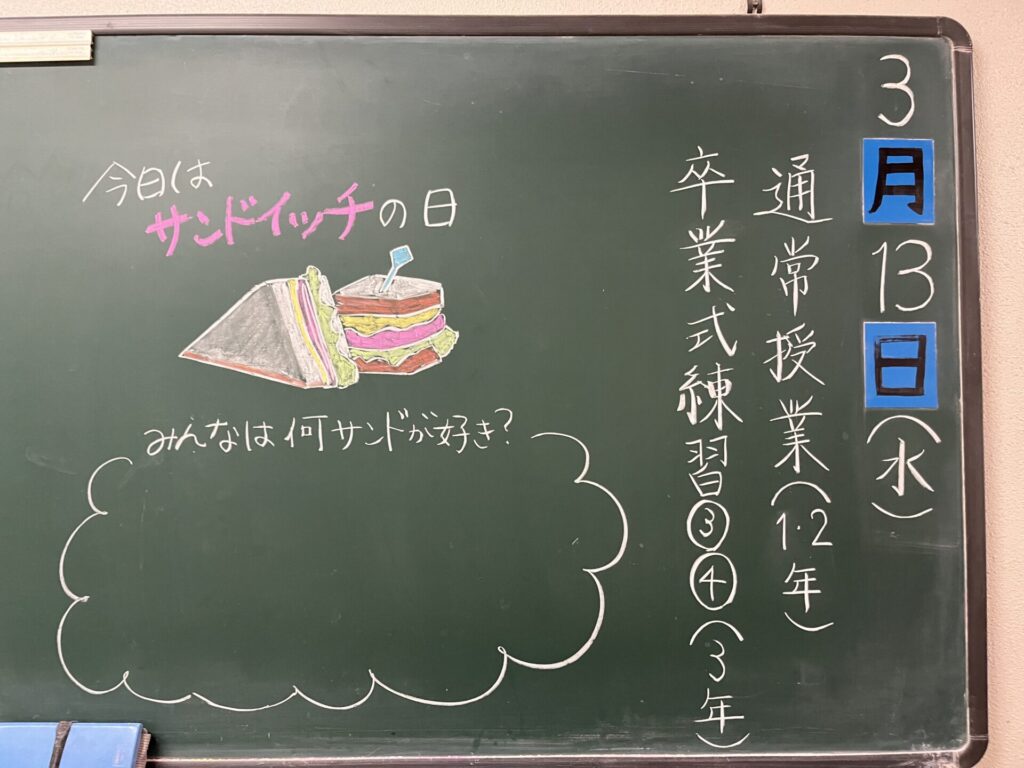 3月13日(水)
通常授業(1·2年)
卒業式練習③④(3年)
今日は
サンドイッチの日
みんなは何サンドが好き?